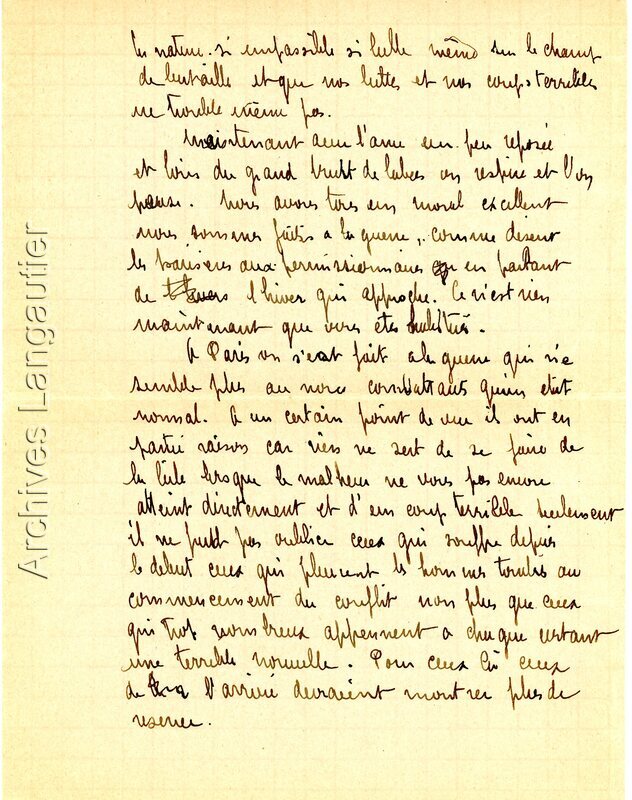 la nature. si impassible si belle même sur le champ
de bataille et que nos luttes et nos coups terribles
ne trouble même pas.
Maintenant avec l'ame un peu reposée
et loin du grand bruit de là bas on respire et l'on
pense. Nous avons tous un moral excellent
nous sommes faits a la guerre, comme disent
les parisiens aux permissionnaires en parlant
de l'hiver qui approche. Ce n'est rien
maintenant que vous êtes habitués.
A Paris on s'est fait a la guerre qui ne
semble plus au non combattants qu'un état
normal. A un certain point de vue ils ont en
partie raison car rien ne sert de se faire de
la bile lorsque le malheur ne vous pas encore
atteint directement et d'un coup terrible seulement
il ne faut pas oublier ceux qui souffre depuis
le debut ceux qui pleurent les hommes tombés au
commencement du conflit non plus que ceux
qui trop nombreux apprennent a chaque instant
une terrible nouvelle. Pour ceux là ceux
de l'arrière devraient montrer plus de
reserve.
Archives Langautier